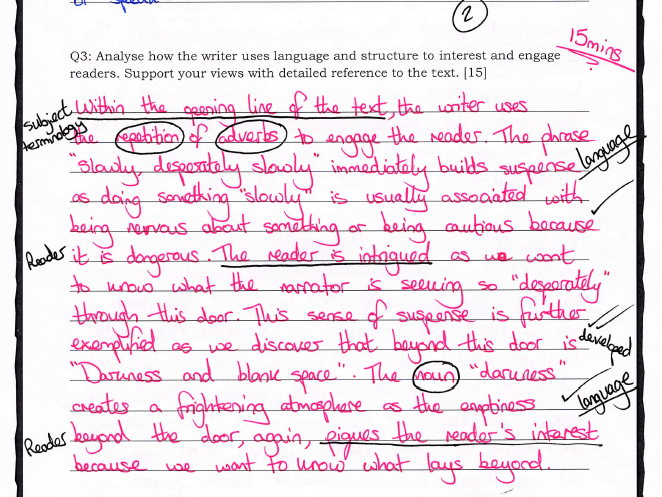 or speak
2
Q3: Analyse how the writer uses language and structure to interest and engage
readers. Support your views with detailed reference to the text. [15]
15mins
?
Subject terminology
Within the opening line of the text, the writer uses
the repetition of adverbs to engage the reader. The phrase
language
"slowly, desperately slowly" immediately builds suspense
as doing something "slowly" is usually associated with
being nervous about something or being cautious because
Reader
it is dangerous. The reader is intrigued as we want
to know what the narrator is seeing so "desperately"
through this door. This sense of suspense is further
exemplified as we discover that beyond this door is
developed
"Darkness and blank space". The noun "darkness"
language
creates a frightening atmosphere as the emptiness
Reader
beyond the door, again, piques the reader's interest
because we want to know what lays beyond.